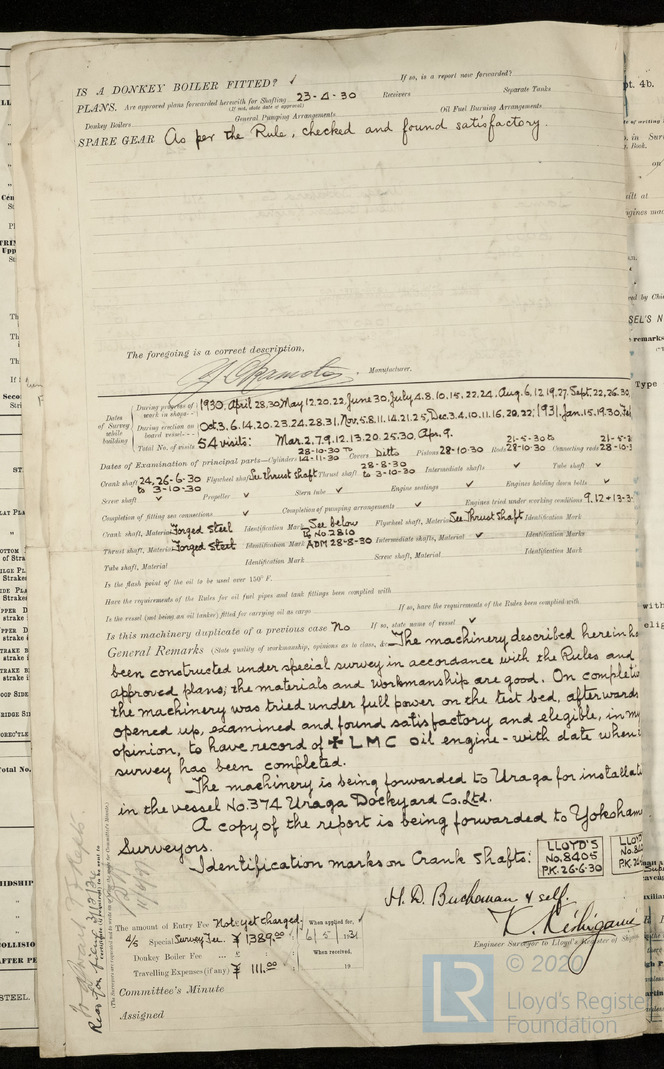 IS A DONKEY BOILER FITTED? ✓ If so, is a report now forwarded?
PLANS. Are approved plans forwarded herewith for Shafting 23-4-30 Receivers Separate Tanks
(If not, state date of approval)
Donkey Boilers General Pumping Arrangements Oil Fuel Burning Arrangements
SPARE GEAR As per the Rule, checked and found satisfactory.
The foregoing is a correct description,
Manufacturer.
Dates of Survey while building
During progress of work in shops-- 1930. April 28.30 May 12.20.22, June 30, July 4.8.10.15.22.24. Aug. 6.12.19.27. Sept. 22.26.30.
During erection on board vessel--- Oct 3.6.14.20.23.24.28.31, Nov. 5.8.11.14.21.25, Dec. 3.4.10.11.16.20.22; 1931. Jan. 15.19.30, Feb
Total No. of visits 54 visits: Mar. 2.7.9.12.13.20.25.30. Apr. 9.
Dates of Examination of principal parts—Cylinders 28-10-30 to 14-11-30 Covers Ditto Pistons 28-10-30 Rods 21-5-30 to 28-10-30 Connecting rods 21-5-3 28-10-3
Crank shaft 24, 26-6-30 to 3-10-30 Flywheel shaft See thrust shaft Thrust shaft 28-8-30 to 3-10-30 Intermediate shafts ✓ Tube shaft ✓
Screw shaft ✓ Propeller ✓ Stern tube ✓ Engine seatings ✓ Engines holding down bolts ✓
Completion of fitting sea connections ✓ Completion of pumping arrangements ✓ Engines tried under working conditions 9.12+13-3-
Crank shaft, Material Forged Steel Identification Mark See below Lr No 2810 Flywheel shaft, Material See Thrust Shaft Identification Mark
Thrust shaft, Material Forged Steel Identification Mark ADM 28-8-30 Intermediate shafts, Material ✓ Identification Marks
Tube shaft, Material Identification Mark Screw shaft, Material Identification Mark
Is the flash point of the oil to be used over 150° F.
Have the requirements of the Rules for oil fuel pipes and tank fittings been complied with
Is the vessel (not being an oil tanker) fitted for carrying oil as cargo If so, have the requirements of the Rules been complied with
Is this machinery duplicate of a previous case No If so, state name of vessel ✓
General Remarks (State quality of workmanship, opinions as to class, &c. The machinery described herein ha
been constructed under special survey in accordance with the Rules and
approved plans; the materials and workmanship are good. On completi
the machinery was tried under full power on the test bed, afterwards
opened up, examined and found satisfactory and elegible, in my
opinion, to have record of ✠ LMC oil engine - with date when
survey has been completed.
The machinery is being forwarded to Uraga for installat
in the vessel No. 374 Uraga Dockyard Co. Ltd.
A copy of the report is being forwarded to Yokoham
Surveyors.
Identification marks on Crank Shafts: LLOYD'S No. 8405 P.K. 26-6-30 LLOY No. 84 P.K. 26
H. D. Buchanan & self.
K. Kishigami
Engineer Surveyor to Lloyd's Register of Shipp
The amount of Entry Fee Not yet charged When applied for,
4/5 Special Survey Fee. ¥ 1389.00 6/5 1931
Donkey Boiler Fee ... When received,
Travelling Expenses (if any) ¥ 111.00 19
Committee's Minute
Assigned
© 2020
LR
Lloyd's Register
Foundation